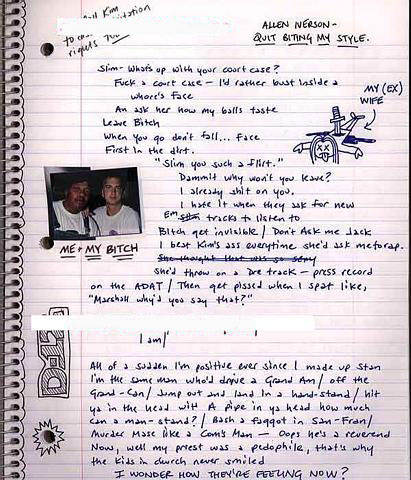 Call Kim
to
rights too
ALLEN IVERSON-
QUIT BITING MY STYLE.
Slim- What's up with your court case?
Fuck a court case - I'd rather bust inside a
whore's face
An ask her how my balls taste
Leave Bitch
When you go don't fall... face
First in the dirt.
"Slim you such a flirt."
Dammit why won't you leave?
I already shit on you,
I hate it when they ask for new
Em tracks to listen to
Bitch get invisible / Don't Ask me Jack
I beat Kim's ass everytime she'd ask me to rap.
She thought that was so sexy
She'd throw on a Dre track - press record
on the ADAT / Then get pissed when I spat like,
"Marshall why'd you say that?"
MY (EX)
WIFE
ME + MY BITCH
I am/
D-12
All of a sudden I'm positive ever since I made up Stan
I'm the same man who'd drive a Grand Am / off the
Grand-Can / Jump out and land in a hand-stand / hit
ya in the head with A pipe in ya head how much
can a man-stand? / Bash a faggot in San-Fran /
Murder Mase like a Con's Man - Oops he's a reverend
Now, well my priest was a pedophile, that's why
the kids in church never smiled
I WONDER HOW THEY'RE FEELING NOW?